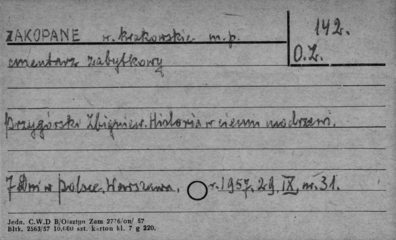 ZAKOPANE w. krakowskie m.p. 142.
cmentarz zabytkowy O.Z.
Przygórski Zbigniew. Historia w cieniu modrzewi.
7 Dni w Polsce, Warszawa, r. 1957. 29. IX, nr. 31.
Jedn. C.W.D B/Olsztyn Zam 2776/on/ 57
Bltk. 2563/57 10.000 szt. karton kl. 7 g 220.